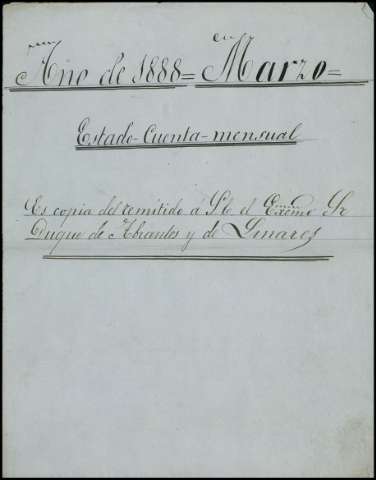 Año de 1888=Marzo=
Estado-Cuenta-mensual
Es copia del remitido á S.E. el Exćmo Sr
Duque de Abrantes y de Linares